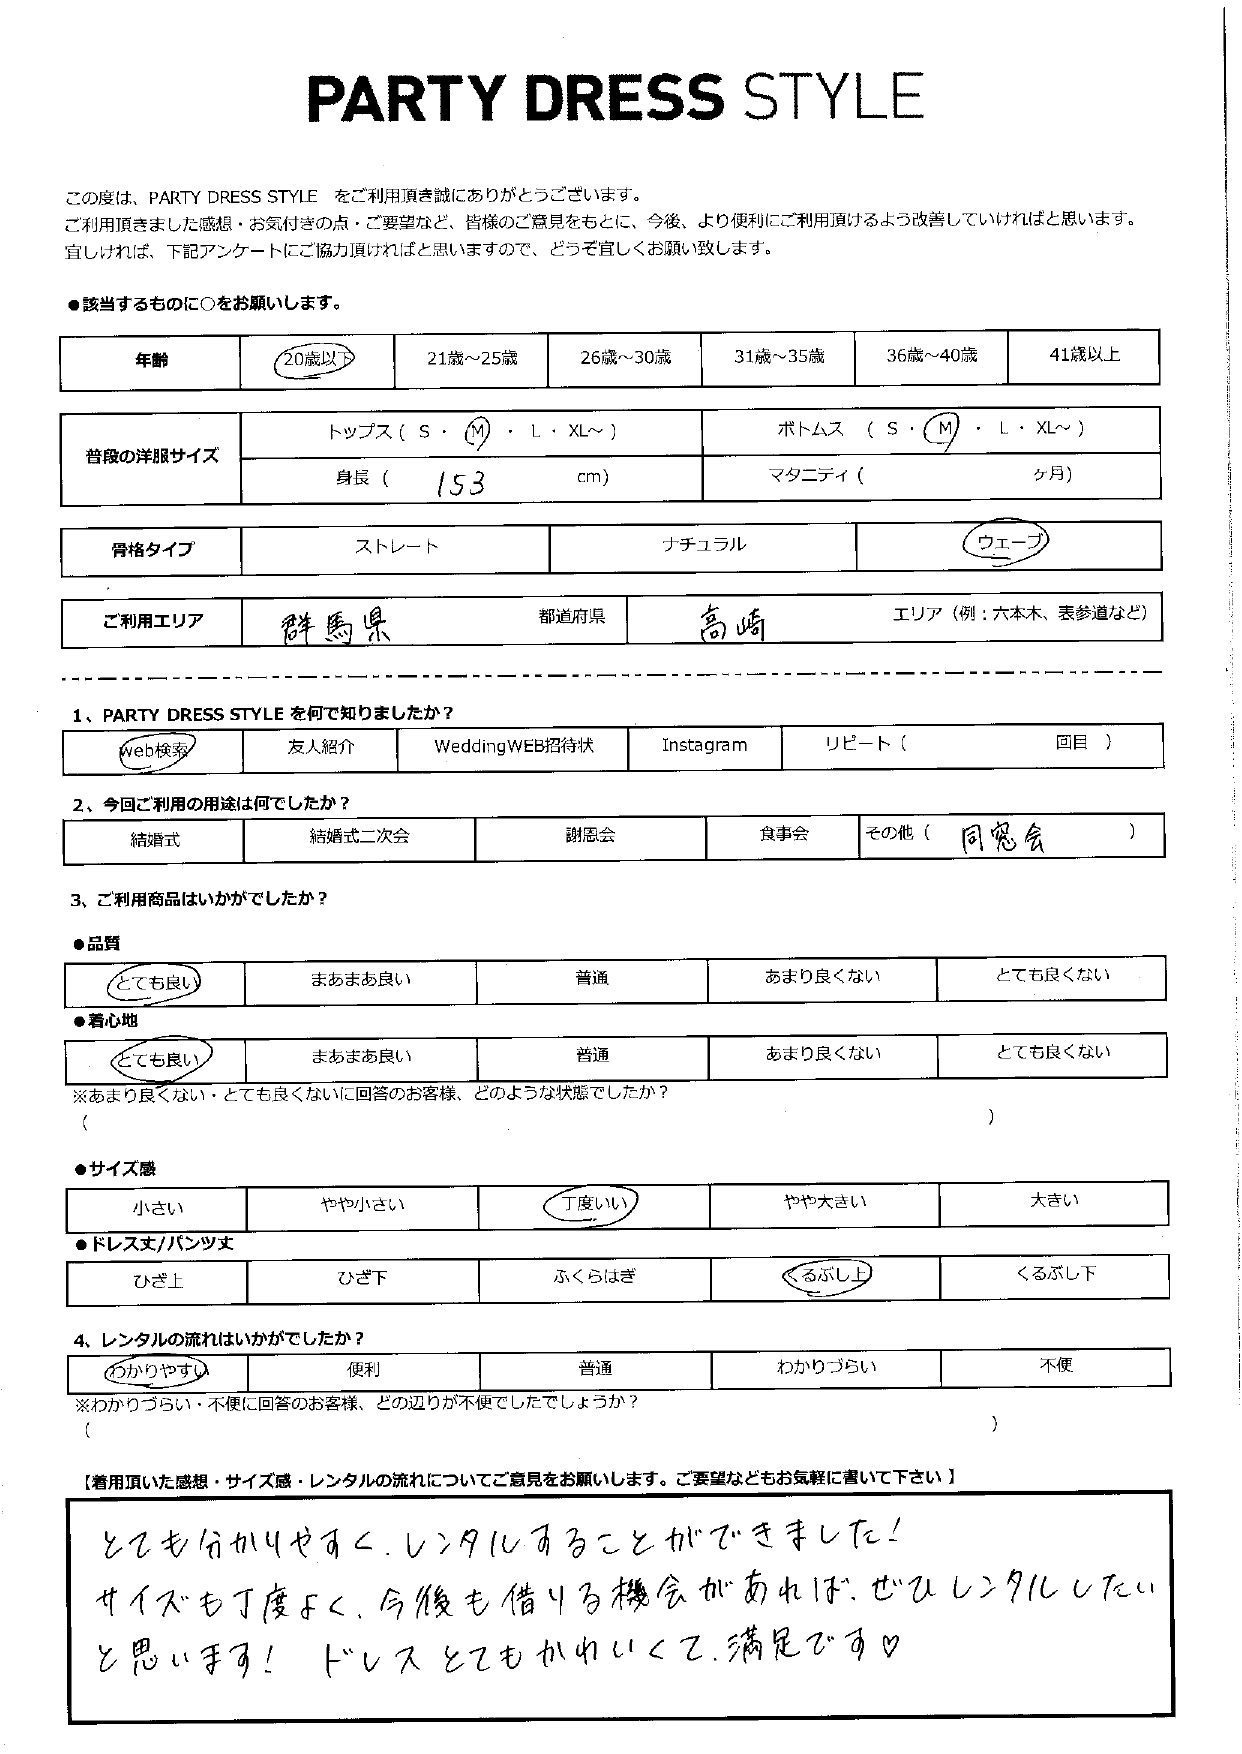 PARTY DRESS STYLE
この度は、PARTY DRESS STYLE をご利用頂き誠にありがとうございます。
ご利用頂きました感想・お気付きの点・ご要望など、皆様のご意見をもとに、今後、より便利にご利用頂けるよう改善していければと思います。
宜しければ、下記アンケートにご協力頂ければと思いますので、どうぞ宜しくお願い致します。
●該当するものに○をお願いします。
年齢 20歳以下 21歳～25歳 26歳～30歳 31歳～35歳 36歳～40歳 41歳以上
普段の洋服サイズ トップス ( S ・ M ・ L ・ XL～ ) ボトムス ( S ・ M ・ L ・ XL～ )
身長 ( 153 cm) マタニティ ( ヶ月)
骨格タイプ ストレート ナチュラル ウェーブ
ご利用エリア 群馬県 都道府県 高崎 エリア（例：六本木、表参道など）
1、PARTY DRESS STYLE を何で知りましたか？
web検索 友人紹介 WeddingWEB招待状 Instagram リピート ( 回目 )
2、今回ご利用の用途は何でしたか？
結婚式 結婚式二次会 謝恩会 食事会 その他 ( 同窓会 )
3、ご利用商品はいかがでしたか？
●品質
とても良い まあまあ良い 普通 あまり良くない とても良くない
●着心地
とても良い まあまあ良い 普通 あまり良くない とても良くない
※あまり良くない・とても良くないに回答のお客様、どのような状態でしたか？
( )
●サイズ感
小さい やや小さい 丁度いい やや大きい 大きい
●ドレス丈/パンツ丈
ひざ上 ひざ下 ふくらはぎ くるぶし上 くるぶし下
4、レンタルの流れはいかがでしたか？
わかりやすい 便利 普通 わかりづらい 不便
※わかりづらい・不便に回答のお客様、どの辺りが不便でしたでしょうか？
( )
【着用頂いた感想・サイズ感・レンタルの流れについてご意見をお願いします。ご要望などもお気軽に書いて下さい 】
とても分かりやすく、レンタルすることができました！
サイズも丁度よく、今後も借りる機会があれば、ぜひレンタルしたい
と思います！ ドレスとてもかわいくて、満足です♡